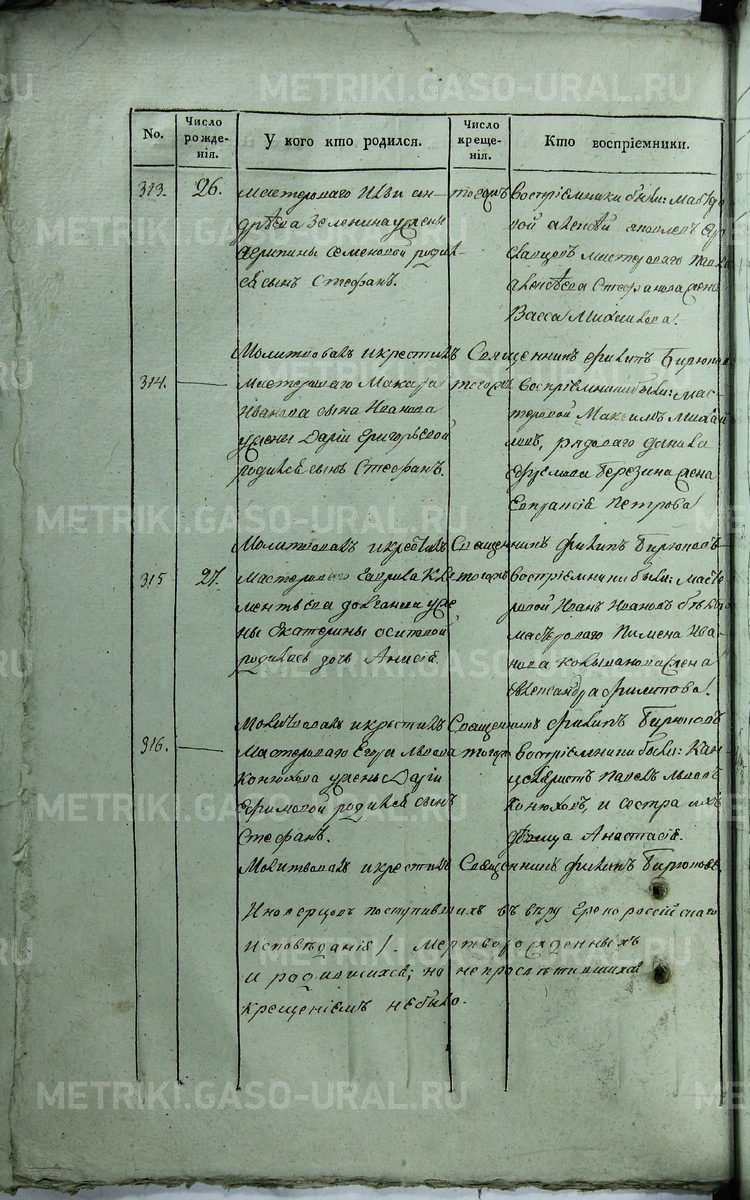 METRIKI.GASO-URAL.RU
No.
Число рожде-нія.
У кого кто родился.
Число креще-нія.
Кто воспріемники.
313. 26.
мастероваго Ильи Ан-
дрѣева Зеленина у жены
Агрипины Семеновой родил-
ся сынъ Стефанъ.
тогожъ
Воспріемники были: мастеро-
вой
мастероваго
Стефанова жена
Васса Михайлова.
Молитвовалъ и крестилъ Священникъ Филипъ Бирюковъ
314.
Мастероваго Макара
Иванова сына Иванова
у жены Дарьи Григорьевой
родился сынъ Стефанъ.
тогожъ
Воспріемники были: мас-
теровой Максимъ Михай-
ловъ, рядоваго
Ефремова Березина жена
Петрова
Молитвовалъ и крестилъ Священникъ Филипъ Бирюковъ
315 27.
Мастероваго Гаврила Кле-
ментьева у же-
ны Екатерины Осиповой
родилась дочь Анисія.
тогожъ
Воспріемники были: масте-
ровой Иванъ Ивановъ
мастероваго Пимена Ива-
нова жена
Александра Филипова.
Молитвовалъ и крестилъ Священникъ Филипъ Бирюковъ
316.
Мастероваго Егора Львова
Конюхова у жены Дарьи
Ефимовой родился сынъ
Стефанъ.
тогожъ
Воспріемники были: Кан-
целяристъ Павелъ Львовъ
Конюховъ, и сестра ихъ
дѣвица Анастасія.
Молитвовалъ и крестилъ Священникъ Филипъ Бирюковъ.
Иноверцовъ поступившихъ въ вѣру Грекороссійскаго
исповѣданія, мертворожденныхъ
и родившихся, но непросвѣтившихся
крещеніемъ небыло.